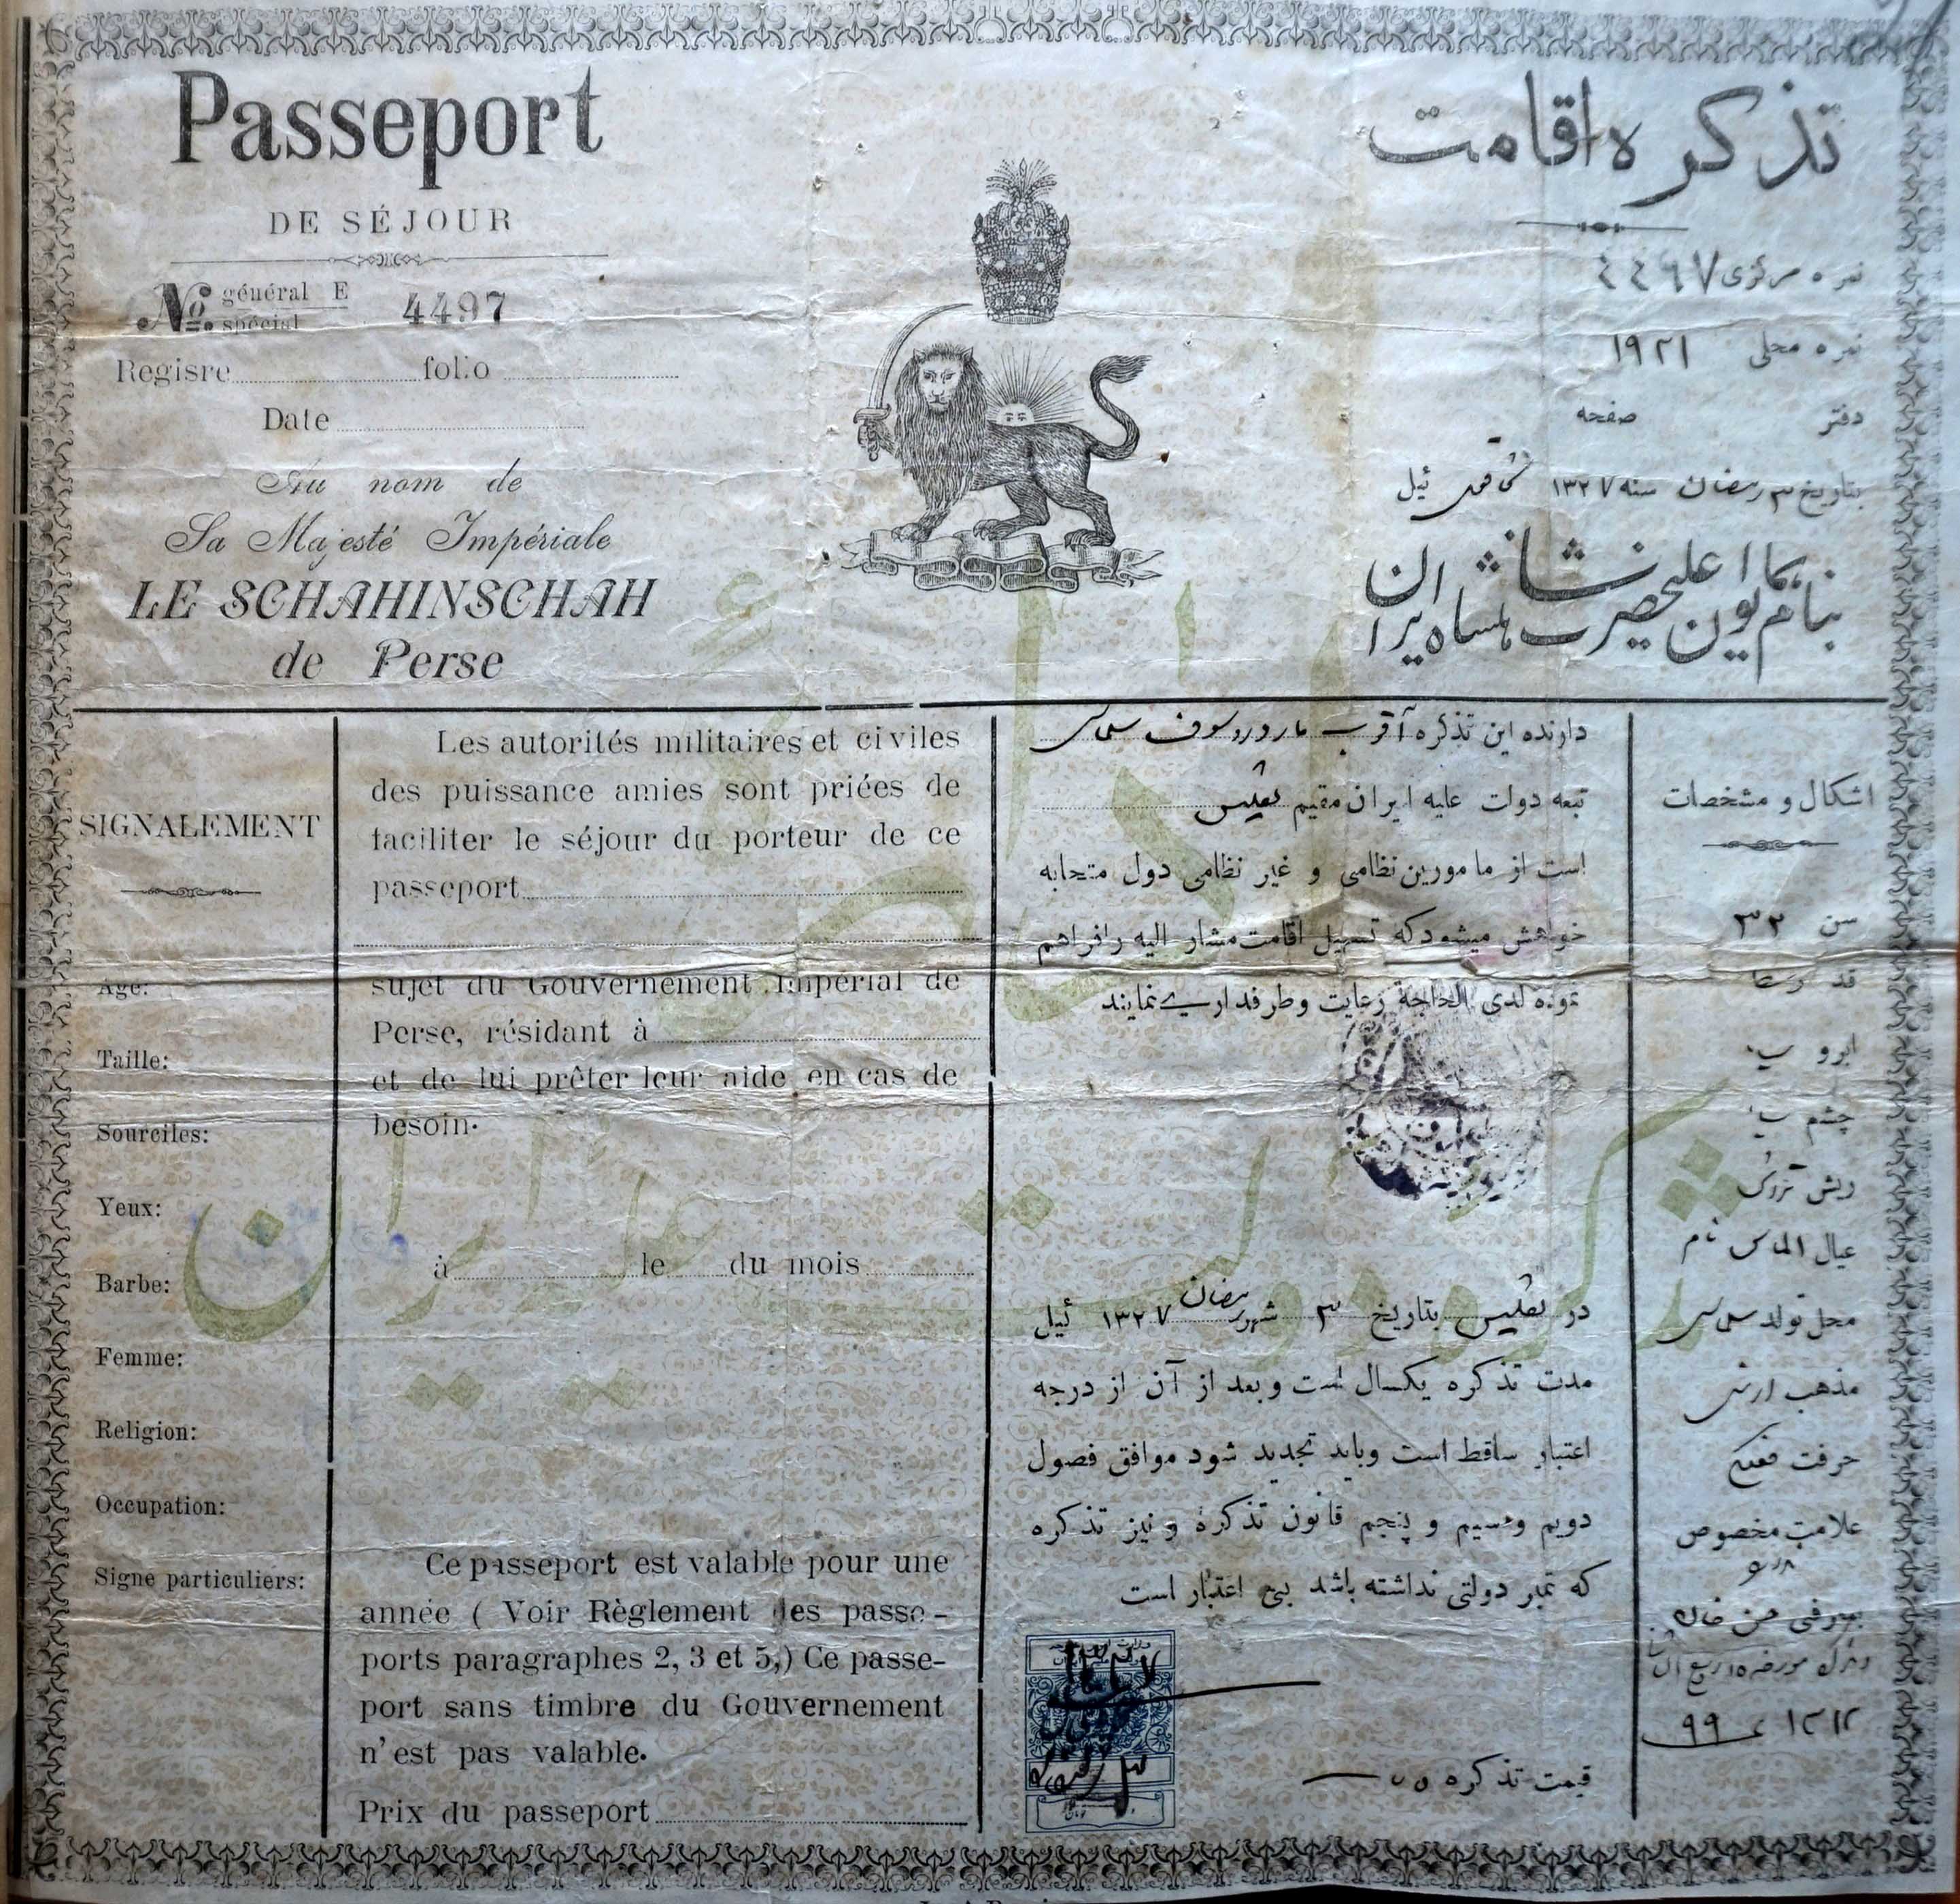 Passeport
DE SÉJOUR
No. général E
spécial 4497
Regisre folio
Date
Au nom de
Sa Majesté Impériale
LE SCHAHINSCHAH
de Perse
تذكره اقامت
نمره مركزى ٤٤٩٧
نمره محلى ١٩٢١
دفتر صفحه
بتاريخ ٣ رمضان سنه ١٣٢٧ ئيل
بنام همايون اعليحضرت شاهنشاه ايران
SIGNALEMENT
Age:
Taille:
Sourciles:
Yeux:
Barbe:
Femme:
Religion:
Occupation:
Signe particuliers:
Les autorités militaires et civiles
des puissance amies sont priées de
faciliter le séjour du porteur de ce
passeport
sujet du Gouvernement Impérial de
Perse, résidant à
et de lui prêter leur aide en cas de
besoin.
à le du mois
Ce passeport est valable pour une
année ( Voir Règlement des passe-
ports paragraphes 2, 3 et 5,) Ce passe-
port sans timbre du Gouvernement
n'est pas valable.
Prix du passeport
دارنده اين تذكره
تبعه دولت عليه ايران مقيم تفليس
است از مامورين نظامى و غير نظامى دول متحابه
خواهش ميشود كه تسهيل اقامت مشار اليه را فراهم
نموده لدى الحاجة رعايت و طرفدارى نمايند
در تفليس بتاريخ ٣ شهر رمضان ١٣٢٧ ئيل
مدت تذكره يكسال است و بعد از آن از درجه
اعتبار ساقط است و بايد تجديد شود موافق فصول
دويم و سيم و پنجم قانون تذكره و نيز تذكره
كه تمبر دولتى نداشته باشد بى اعتبار است
قيمت تذكره
اشكال و مشخصات
سن ٣٢
قد وسط
ابرو
چشم
ريش
عيال الماس نام
محل تولد سلماس
مذهب ارمنى
حرفت
علامت مخصوص